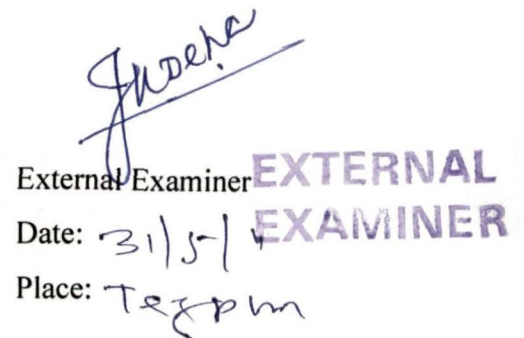 External Examiner EXTERNAL
EXAMINER
Date: 31/5/
Place: Tezpur